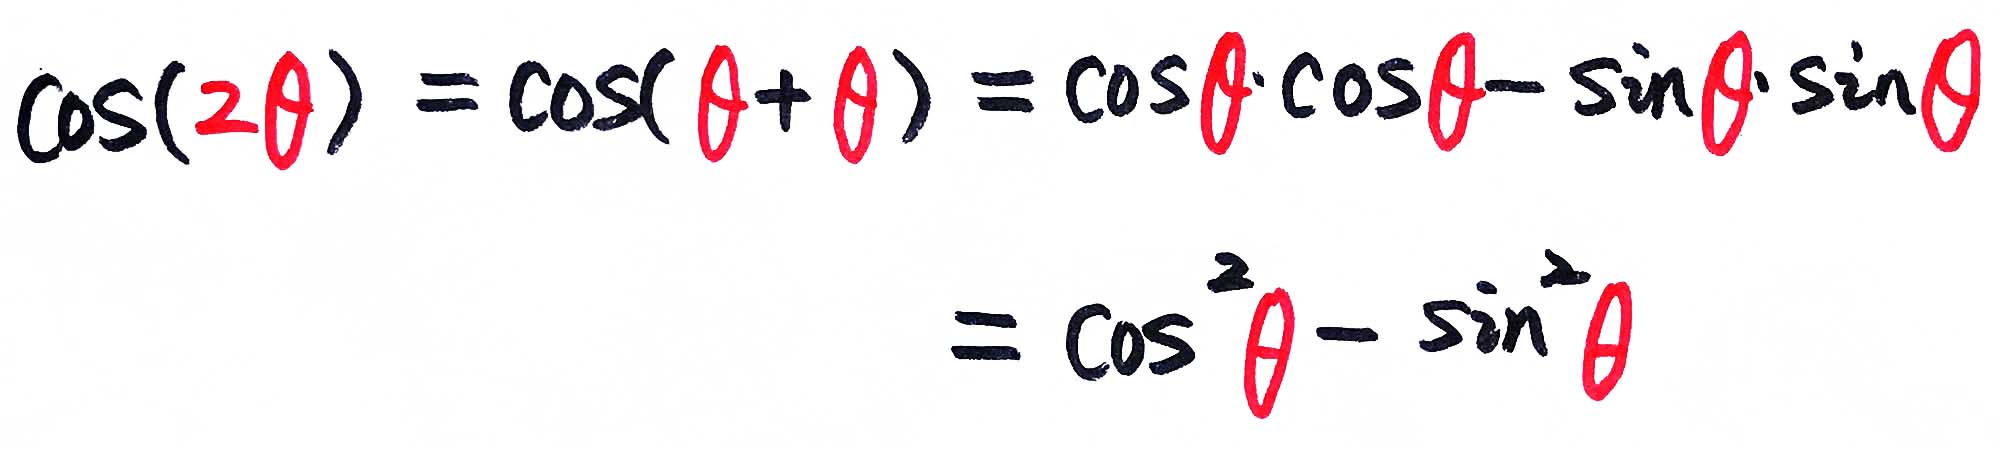 cos(2θ) = cos(θ+θ) = cosθ·cosθ - sinθ·sinθ
= cos²θ - sin²θ